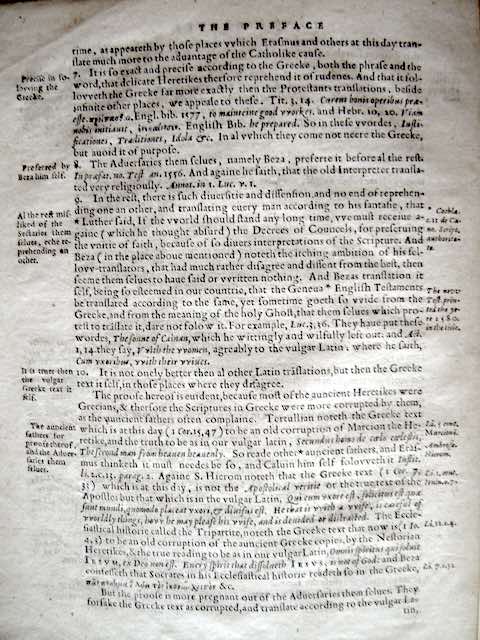 THE PREFACE
time, as appeareth by those places vvhich Erasmus and others at this day tran-
slate much more to the aduantage of the Catholike cause.
Precise in fo-
lovving the
Greeke.
7. It is so exact and precise according to the Greeke, both the phrase and the
word, that delicate Heretikes therfore reprehend it of rudenes. And that it fol-
lovveth the Greeke far more exactly then the Protestants translations, beside
infinite other places, we appeale to these. Tit. 3, 14. Curent bonis operibus præ-
esse. Engl. bib. 1577, to mainteine good vvorkes. and Hebr. 10, 20. Viam
nobis initiauit, English Bib. he prepared. So in these vvordes, Iusti-
ficationes, Traditiones, Idola &c. In al vvhich they come not neere the Greeke,
but auoid it of purpose.
Preferred by
Beza him self.
8. The Aduersaries them selues, namely Beza, preferre it before al the rest.
In præfat. no. Test. an. 1556. And againe he saith, that the old Interpreter transla-
ted very religiously. Annot. in 1. Luc. v. 1.
Al the rest mis-
liked of the
Sectaries them
selues, eche re-
prehending an
other.
9. In the rest, there is such diuersitie and dissension, and no end of reprehen-
ding one an other, and translating euery man according to his fantasie, that
* Luther said, If the vvorld should stand any long time, vve must receiue a-
gaine (vvhich he thought absurd) the Decrees of Councels, for preseruing
the vnitie of faith, because of so diuers interpretations of the Scripture. And
Beza (in the place aboue mentioned) noteth the itching ambition of his fel-
lovv-translators, that had much rather disagree and dissent from the best, then
seeme them selues to haue said or vvritten nothing. And Bezas translation it
self, being so esteemed in our countrie, that the Geneua * English Testaments
be translated according to the same, yet sometime goeth so vvide from the
Greeke, and from the meaning of the holy Ghost, that them selues which pro-
test to trāslate it, dare not folow it. For example, Luc. 3, 36. They haue put these
wordes, The sonne of Cainan, which he wittingly and wilfully left out: and Act.
1, 14 they say, VVith the vvomen, agreably to the vulgar Latin: where he saith,
Cum vxoribus, vvith their vviues.
Cochlæ.
c. 11 de Ca-
no. Script.
authorita-
te.
The nevv
Test. prin-
ted the ye-
re 1580.
in the title.
It is truer then
the vulgar
Greeke text it
self.
10. It is not onely better then al other Latin trāslations, but then the Greeke
text it self, in those places where they disagree.
The proofe hereof is euident, because most of the auncient Heretikes were
Grecians, & therfore the Scriptures in Greeke were more corrupted by them,
as the auncient fathers often complaine. Tertullian noteth the Greeke text
which is at this day (1 Cor. 15, 47) to be an old corruption of Marcion the He-
retike, and the truth to be as in our vulgar latin, Secundus homo de cœlo cœlestis,
The second man from heauen heauenly. So reade other * auncient fathers, and Eras-
mus thinketh it must needes be so, and Caluin him self folovveth it Instit.
li. 2. c. 13. parag. 2. Againe S. Hierom noteth that the Greeke text (1 Cor. 7,
33) which is at this day, is not the Apostolical veritie or the true text of the
Apostles: but that which is in the vulgar Latin, Qui cum vxore est, solicitus est quæ
sunt mundi, quomodo placeat vxori, & diuisus est. He that is vvith a vvife, is careful of
vvorldly things, hovv he may please his vvife, and is deuided or distracted. The Eccle-
siastical historie called the Tripartite, noteth the Greeke text that now is (1 Io.
4, 3) to be an old corruption of the auncient Greeke copies, by the Nestorian
Heretikes, & the true reading to be as in our vulgar Latin, Omnis spiritus qui soluit
IESVM, ex Deo non est. Euery spirit that dissolueth IESVS, is not of God: and Beza
confesseth that Socrates in his Ecclesiastical historie readeth so in the Greeke,
&c.
The auncient
fathers for
proofe therof,
and the Aduer-
saries them
selues.
Li. 5 cont.
Marcionē.
Ambrose.
Hierom.
Li. 1. cont.
Iouin. c. 7.
Li. 12. c. 4.
Li. 7. c. 32
But the proofe is more pregnant out of the Aduersaries them selues. They
forsake the Greeke text as corrupted, and translate according to the vulgar La-
tin,